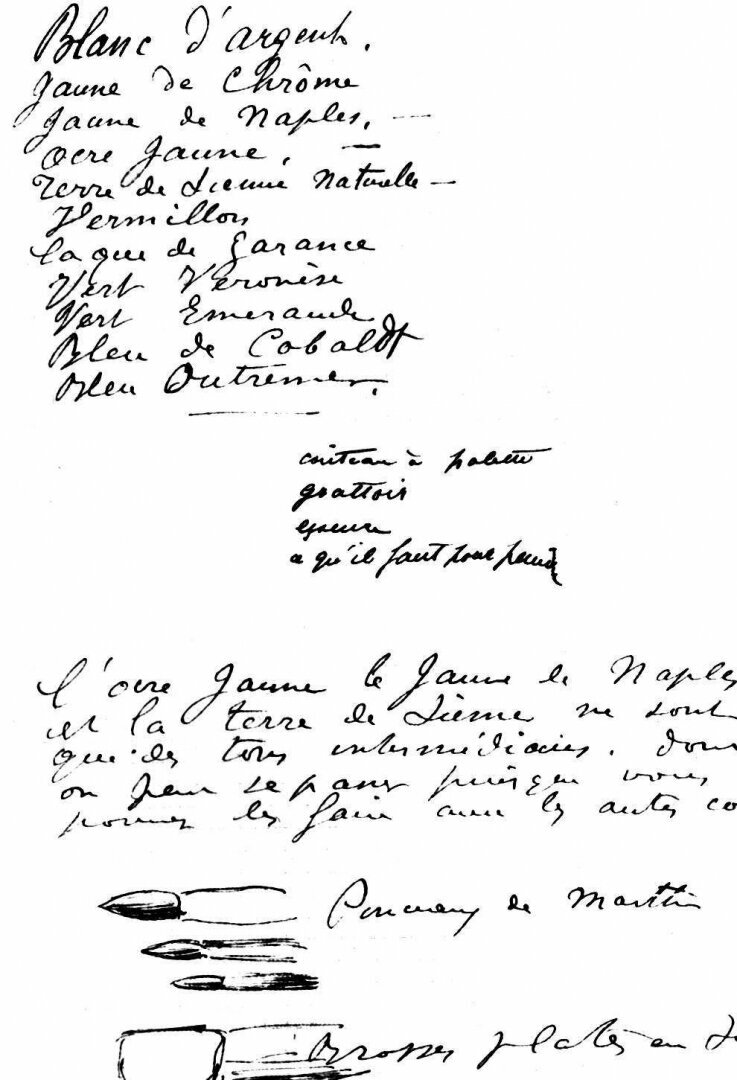 Blanc d'argent.
Jaune de Chrôme
Jaune de Naples. —
ocre Jaune. —
Terre de Sienne Naturelle —
Vermillon
laque de Garance
Vert Véronèse
Vert Emeraude
Bleu de Cobaldt
Bleu Outremer.
couteau à palette
grattoir
essence
ce qu'il faut pour peindre
l'ocre Jaune le Jaune de Naples
et la terre de Sienne ne sont
que des tons intermédiaires. dont
on peut se passer puisque vous
pouvez les faire avec les autres co
Pinceaux de Marttre
Brosses plates en